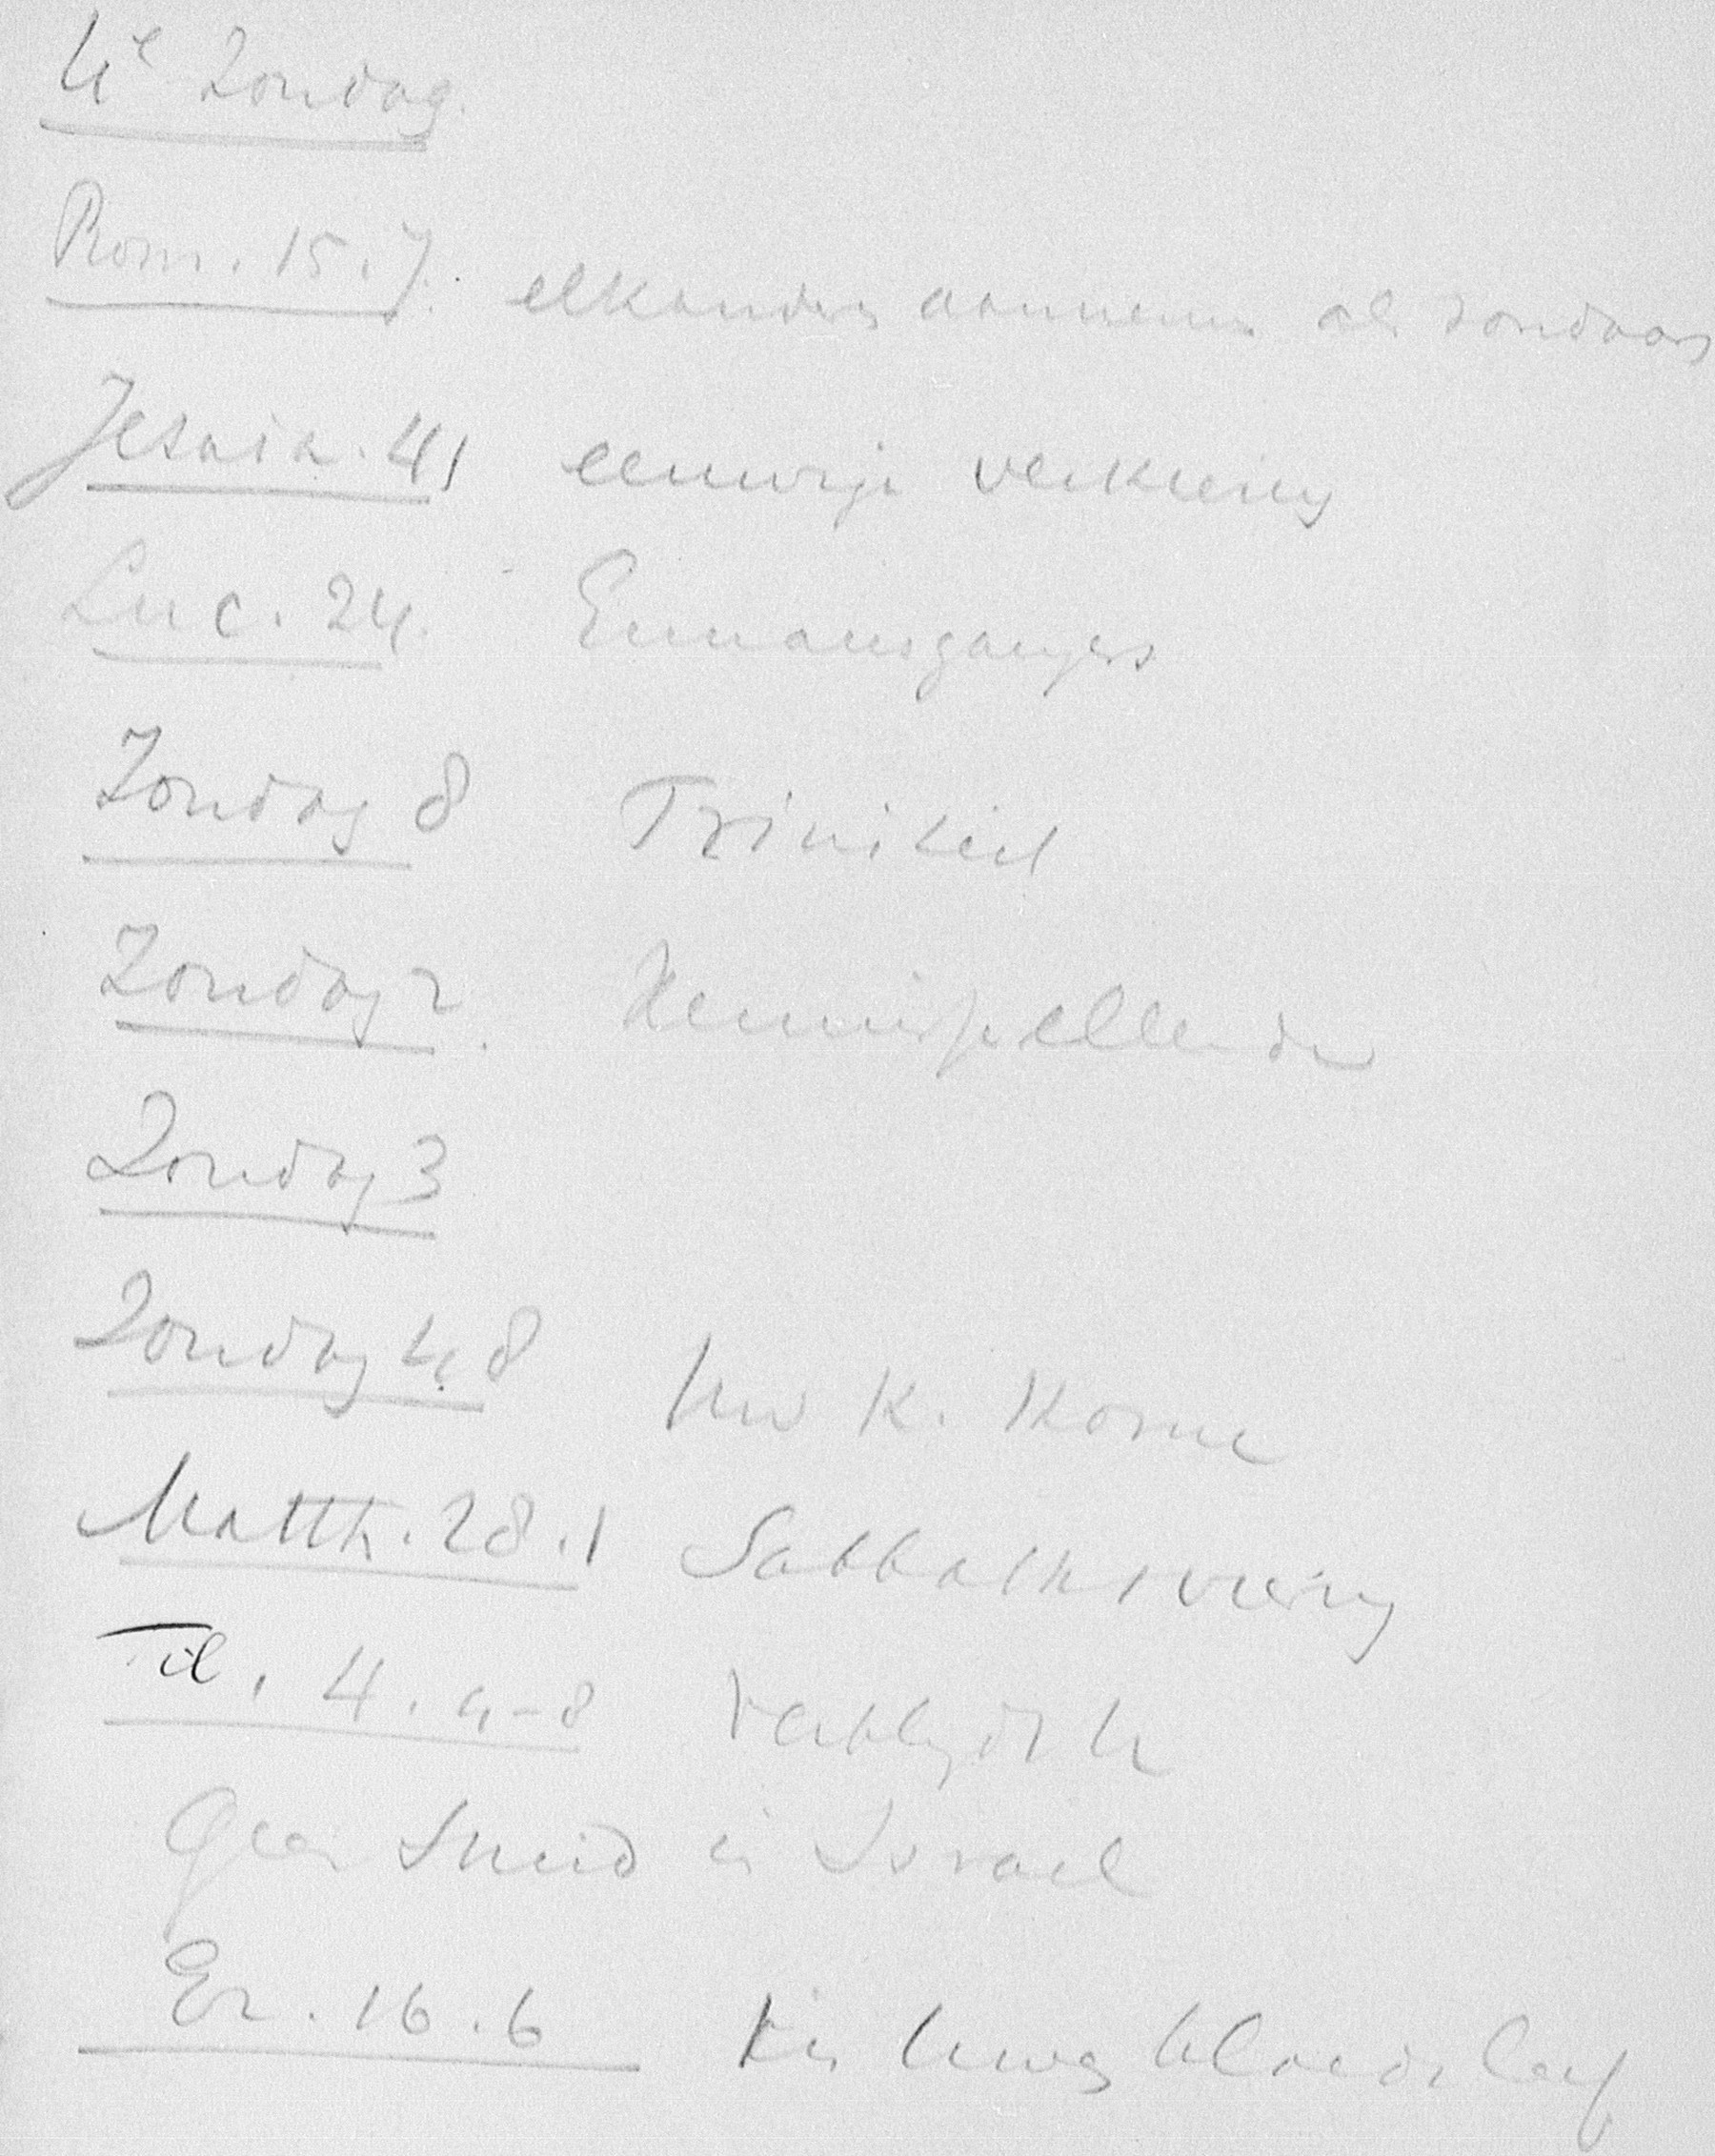 4e Zondag.
Rom. 15.7. elkander aannemen als zondaars
Jesaia. 41 eeuwige verkiezing
Luc. 24. Emmausgangers
Zondag 8 Triniteit
Zondag 2. Kennis ellende
Zondag 3
Zondag 48 Uw K. Kome
Matth. 28.1 Sabbathsviering
4.4-8
Geen Smid in Israel
Ez. 16.6